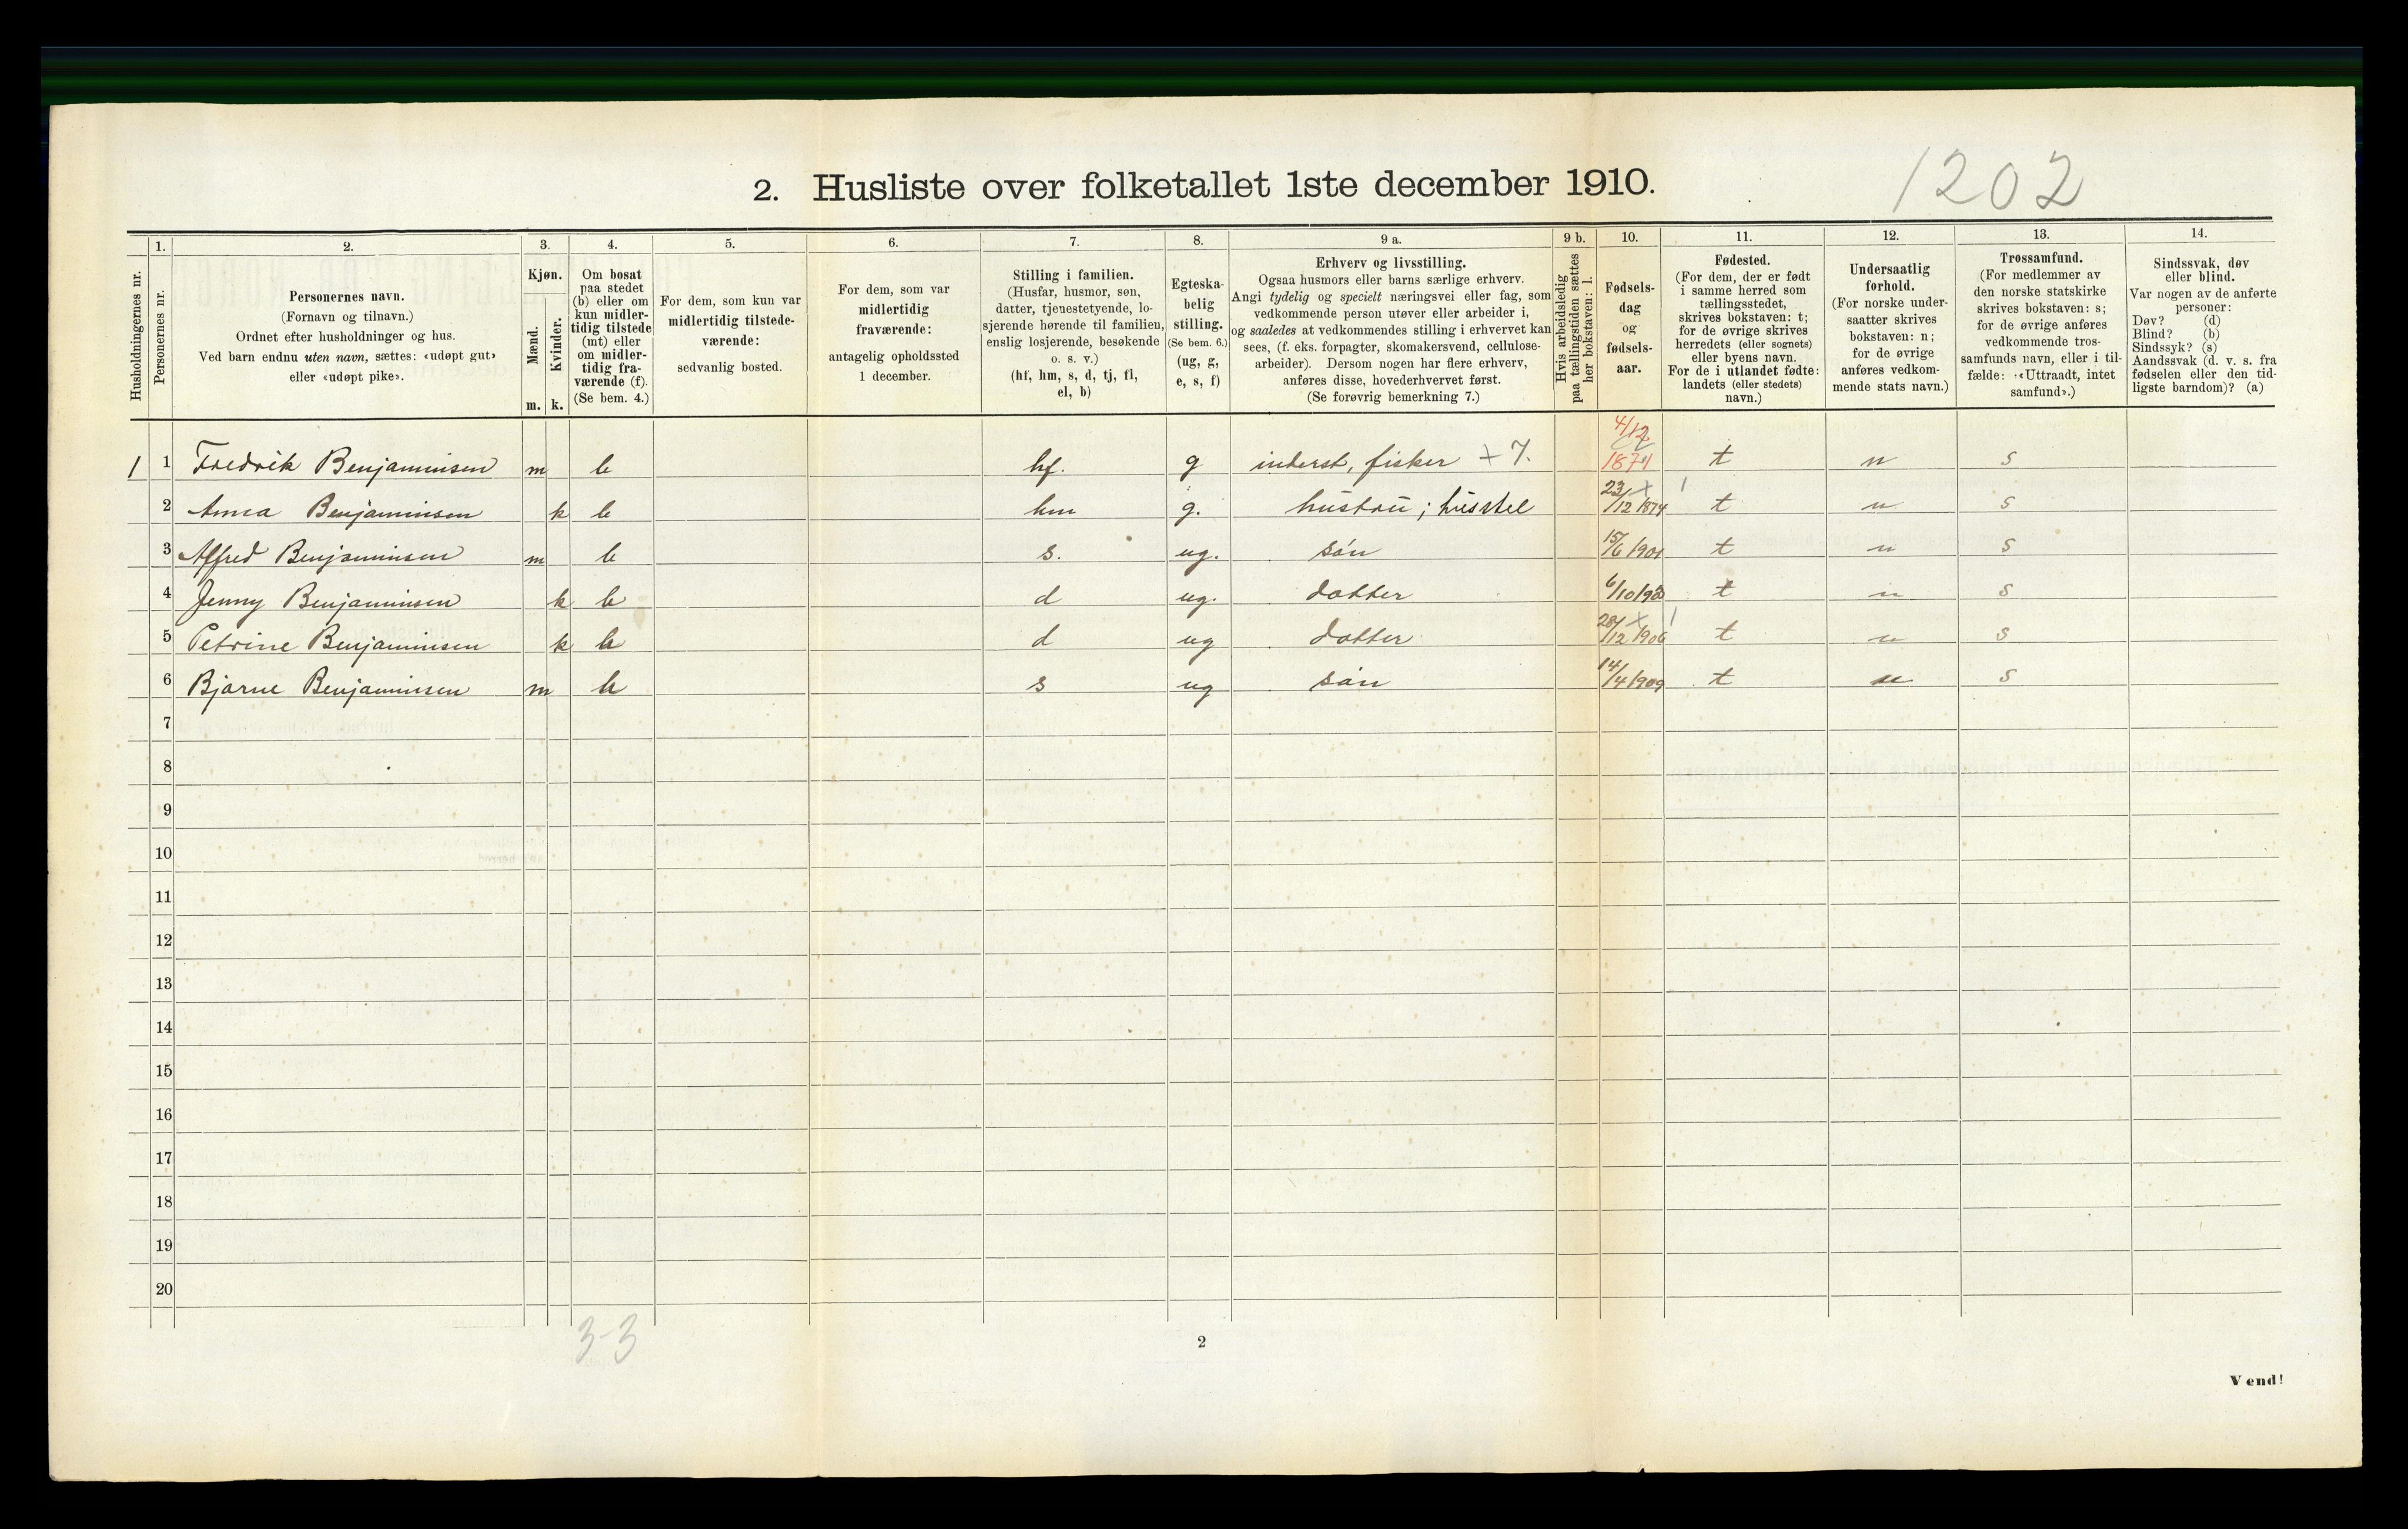 1202
2. Husliste over folketallet 1ste december 1910.
Husholdningernes nr.
1.
Personernes nr.
2.
Personernes navn.
(Fornavn og tilnavn.)
Ordnet efter husholdninger og hus.
Ved barn endnu uten navn, sættes: «udøpt gut»
eller «udøpt pike».
3.
Kjøn.
Mænd.
Kvinder.
m. k.
4.
Om bosat
paa stedet
(b) eller om
kun midler-
tidig tilstede
(mt) eller
om midler-
tidig fra-
værende (f).
(Se bem. 4.)
5.
For dem, som kun var
midlertidig tilstede-
værende:
sedvanlig bosted.
6.
For dem, som var
midlertidig
fraværende:
antagelig opholdssted
1 december.
7.
Stilling i familien.
(Husfar, husmor, søn,
datter, tjenestetyende, lo-
sjerende hørende til familien,
enslig losjerende, besøkende
o. s. v.)
(hf, hm, s, d, tj, fl,
el, b)
8.
Egteska-
belig
stilling.
(Se bem. 6.)
(ug, g,
e, s, f)
9 a.
Erhverv og livsstilling.
Ogsaa husmors eller barns særlige erhverv.
Angi tydelig og specielt næringsvei eller fag, som
vedkommende person utøver eller arbeider i,
og saaledes at vedkommendes stilling i erhvervet kan
sees, (f. eks. forpagter, skomakersvend, cellulose-
arbeider). Dersom nogen har flere erhverv,
anføres disse, hovederhvervet først.
(Se forøvrig bemerkning 7.)
9 b.
Hvis arbeidsledig
paa tællingstiden sættes
her bokstaven: l.
10.
Fødsels-
dag
og
fødsels-
aar.
11.
Fødested.
(For dem, der er født
i samme herred som
tællingsstedet,
skrives bokstaven: t;
for de øvrige skrives
herredets (eller sognets)
eller byens navn.
For de i utlandet fødte:
landets (eller stedets)
navn.)
12.
Undersaatlig
forhold.
(For norske under-
saatter skrives
bokstaven: n;
for de øvrige
anføres vedkom-
mende stats navn.)
13.
Trossamfund.
(For medlemmer av
den norske statskirke
skrives bokstaven: s;
for de øvrige anføres
vedkommende tros-
samfunds navn, eller i til-
fælde: «Uttraadt, intet
samfund».)
14.
Sindssvak, døv
eller blind.
Var nogen av de anførte
personer:
Døv? (d)
Blind? (b)
Sindssyk? (s)
Aandssvak (d. v. s. fra
fødselen eller den tid-
ligste barndom)? (a)
1 1 Fredrik Benjaminsen m b hf. g inderst, fisker 7. 4/12 1871 t n s
2 Anna Benjaminsen k b hm g. hustru; husstel 23/12 1874 t n s
3 Alfred Benjaminsen m b s. ug. søn 15/6 1901 t n s
4 Jenny Benjaminsen k b d ug. datter 6/10 t n s
5 Petrine Benjaminsen k b d ug datter 28/12 1906 t n s
6 Bjarne Benjaminsen m b s ug søn 14/4 1909 t n s
7
8
9
10
11
12
13
14
15
16
17
18
19
20
3-3
2
Vend!